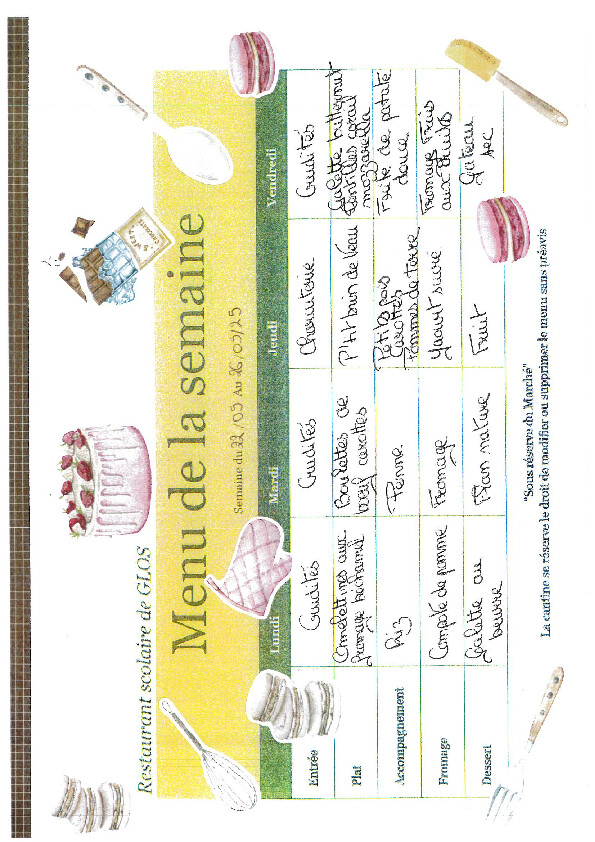 Restaurant scolaire de GLOS
Menu de la semaine
Semaine du 22/09 Au 26/09/25
Lundi Mardi Jeudi Vendredi
Entrée Crudités Crudités Charcuterie Crudités
Plat Omelettines aux fromage béchamel Boulettes de bœuf carottes P'tit brin de Veau Galette butternut lentilles corail mozzarella
Accompagnement Riz Penne Petits pois carottes Pommes de terre Frite de patate douce
Fromage Compote de pomme Fromage Yaourt sucré Fromage Frais aux fruits
Dessert Galette au beurre Flan nature Fruit Gateau sec
"Sous réserve du Marché"
La cantine se réserve le droit de modifier ou supprimer le menu sans préavis